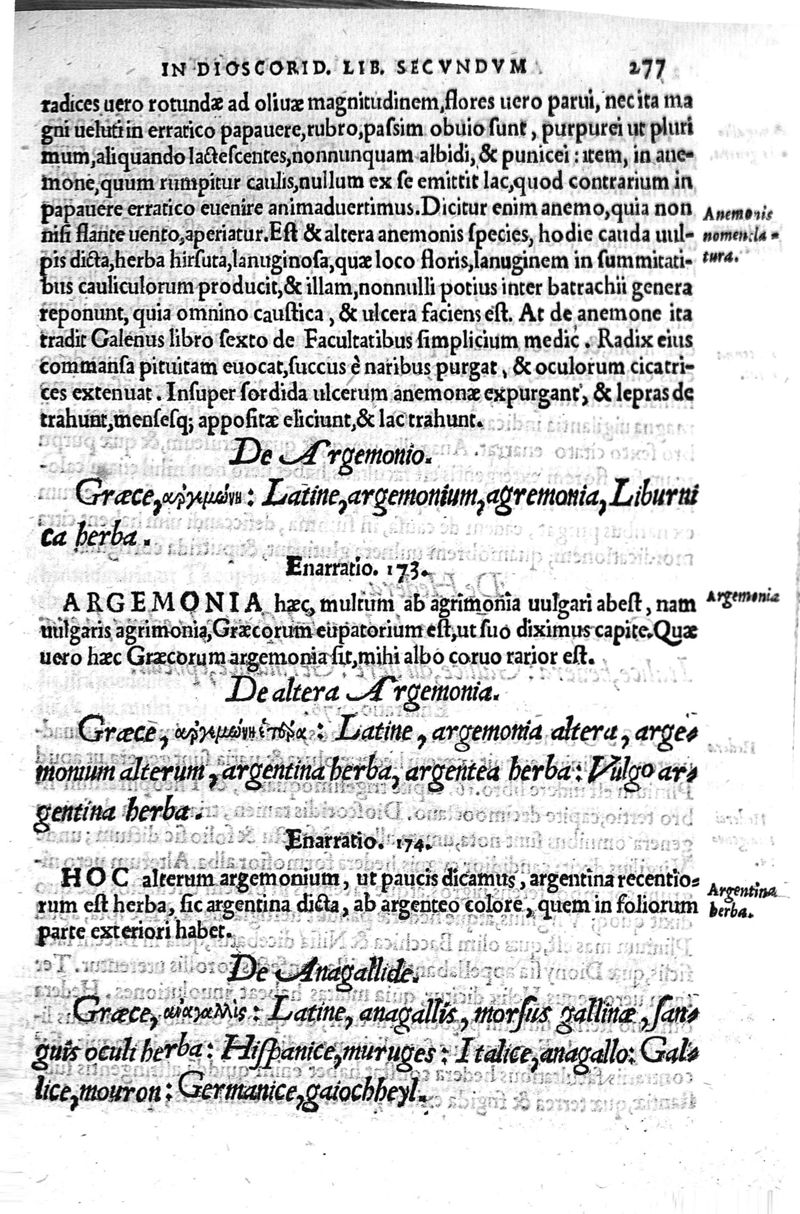 IN DIOSCORID. LIB. SECVNDVM 277
radices uero rotundæ ad oliuæ magnitudinem, flores uero parui, nec ita ma
gni ueluti in erratico papauere, rubro, passim obuio sunt, purpurei ut pluri
mum, aliquando lactescentes, nonnunquam albidi, & punicei: item, in ane-
mone, quum rumpitur caulis, nullum ex se emittit lac, quod contrarium in
papauere erratico euenire animaduertimus. Dicitur enim anemo, quia non
nisi flante uento, aperiatur. Est & altera anemonis species, hodie cauda uul-
pis dicta, herba hirsuta, lanuginosa, quæ loco floris, lanuginem in summitati-
bus cauliculorum producit, & illam, nonnulli potius inter batrachii genera
reponunt, quia omnino caustica, & ulcera faciens est. At de anemone ita
tradit Galenus libro sexto de Facultatibus simplicium medic. Radix eius
commansa pituitam euocat, succus è naribus purgat, & oculorum cicatri-
ces extenuat. Insuper sordida ulcerum anemonæ expurgant, & lepras de
trahunt, mensesq; appositæ eliciunt, & lac trahunt.
Anemonis
nomencla-
tura.
De Argemonio.
Græce, αργεμώνη: Latine, argemonium, agremonia, Liburni
ca herba.
Enarratio. 173.
ARGEMONIA hæc, multum ab agrimonia uulgari abest, nam
uulgaris agrimonia, Græcorum eupatorium est, ut suo diximus capite. Quæ
uero hæc Græcorum argemonia sit, mihi albo coruo rarior est.
Argemonia
De altera Argemonia.
Græce, αργεμώνη ἑτέρα: Latine, argemonia altera, arge-
monium alterum, argentina herba, argentea herba: Vulgo ar-
gentina herba.
Enarratio. 174.
HOC alterum argemonium, ut paucis dicamus, argentina recentio-
rum est herba, sic argentina dicta, ab argenteo colore, quem in foliorum
parte exteriori habet.
Argentina
herba.
De Anagallide.
Græce, αναγαλλὶς: Latine, anagallis, morsus gallinæ, san-
guis oculi herba: Hispanice, muruges: Italice, anagallo: Gal-
lice, mouron: Germanice, gaiochheyl.